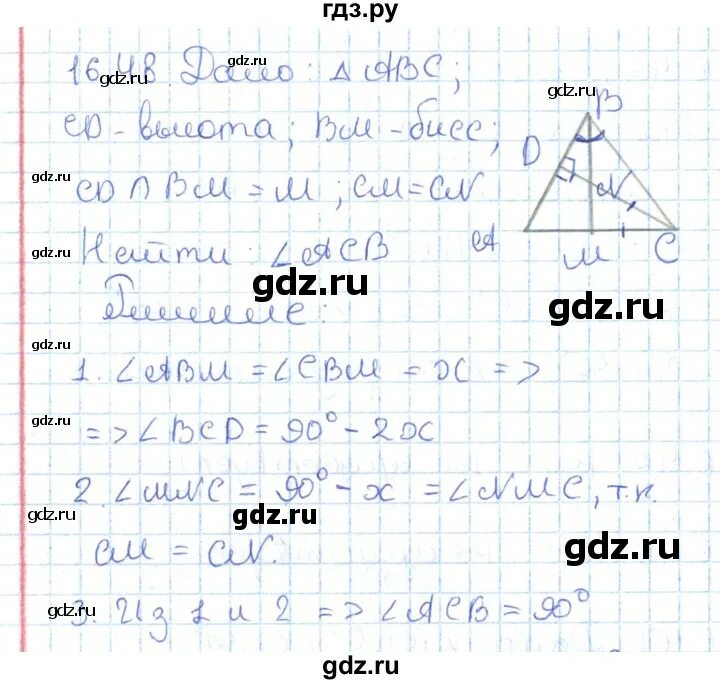 гдз.ру
16.48. Дано: △ABC;
CD-высота; BM-бисс;
CD∩BM=M; CM=CN
Найти: ∠ACB
Решение:
1. ∠ABM = ∠CBM = x =>
=> ∠BCD = 90° - 2x
2. ∠MNC = 90° - x = ∠NMC, т.к.
CM = CN.
3. Из 1 и 2 => ∠ACB = 90°
B
D
N
A
M
C
gdz.ru
gdz.ru
gdz.ru
gdz.ru
gdz.ru
gdz.ru
gdz.ru
gdz.ru
gdz.ru
gdz.ru
gdz.ru
gdz.ru
gdz.ru
gdz.ru